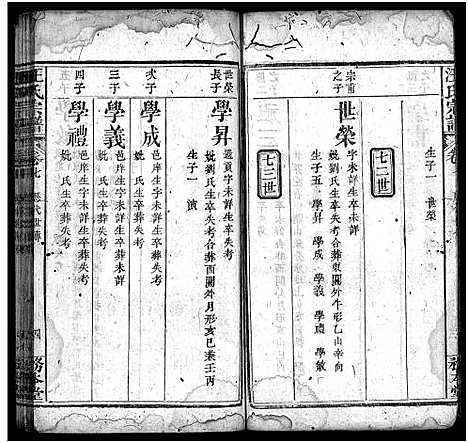 汪氏宗譜
生子一 世榮
七二世
宗甫之子
世榮
字未詳生卒未詳
妣劉氏生卒失考合葬東關外牛形乙山辛向
生子五 學昇 學成 學義 學禮 學敏
七三世
世榮長子
學昇
邑貢字未詳生卒失考
妣劉氏生卒失考合葬西關外月形亥山巳兼壬丙
生子一 濱
次子
學成
邑庠生字未詳生卒葬未詳
妣 氏生卒葬失考
三子
學義
邑庠生字未詳生卒葬未詳
妣 氏生卒葬失考
四子
學禮
邑庠生字未詳生卒葬失考
妣 氏生卒葬失考
汪氏宗譜
務本堂